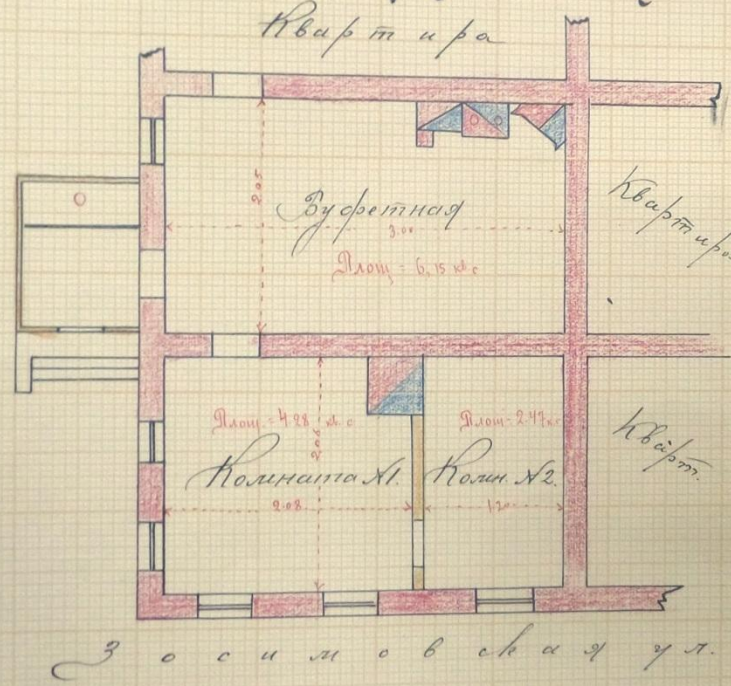 Квартира
2.05
Буфетная
3.00
Площ = 6,15 кв с
Квартира
Площ = 4.28 кв. с
Площ = 2.47 к. с
2.06
Комната №1.
Комн. №2.
2.08
1.20
Кварт.
Зосимовская ул.